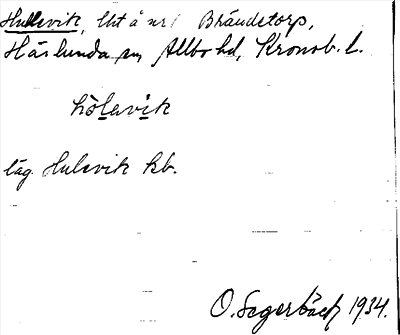 Hulevik, lht å nr 1 Brändetorp,
Härlunda sn Allbo hd, Kronob. l.
hòlavik
låg. Hulevik kb.
O. Sagerbäck 1934.